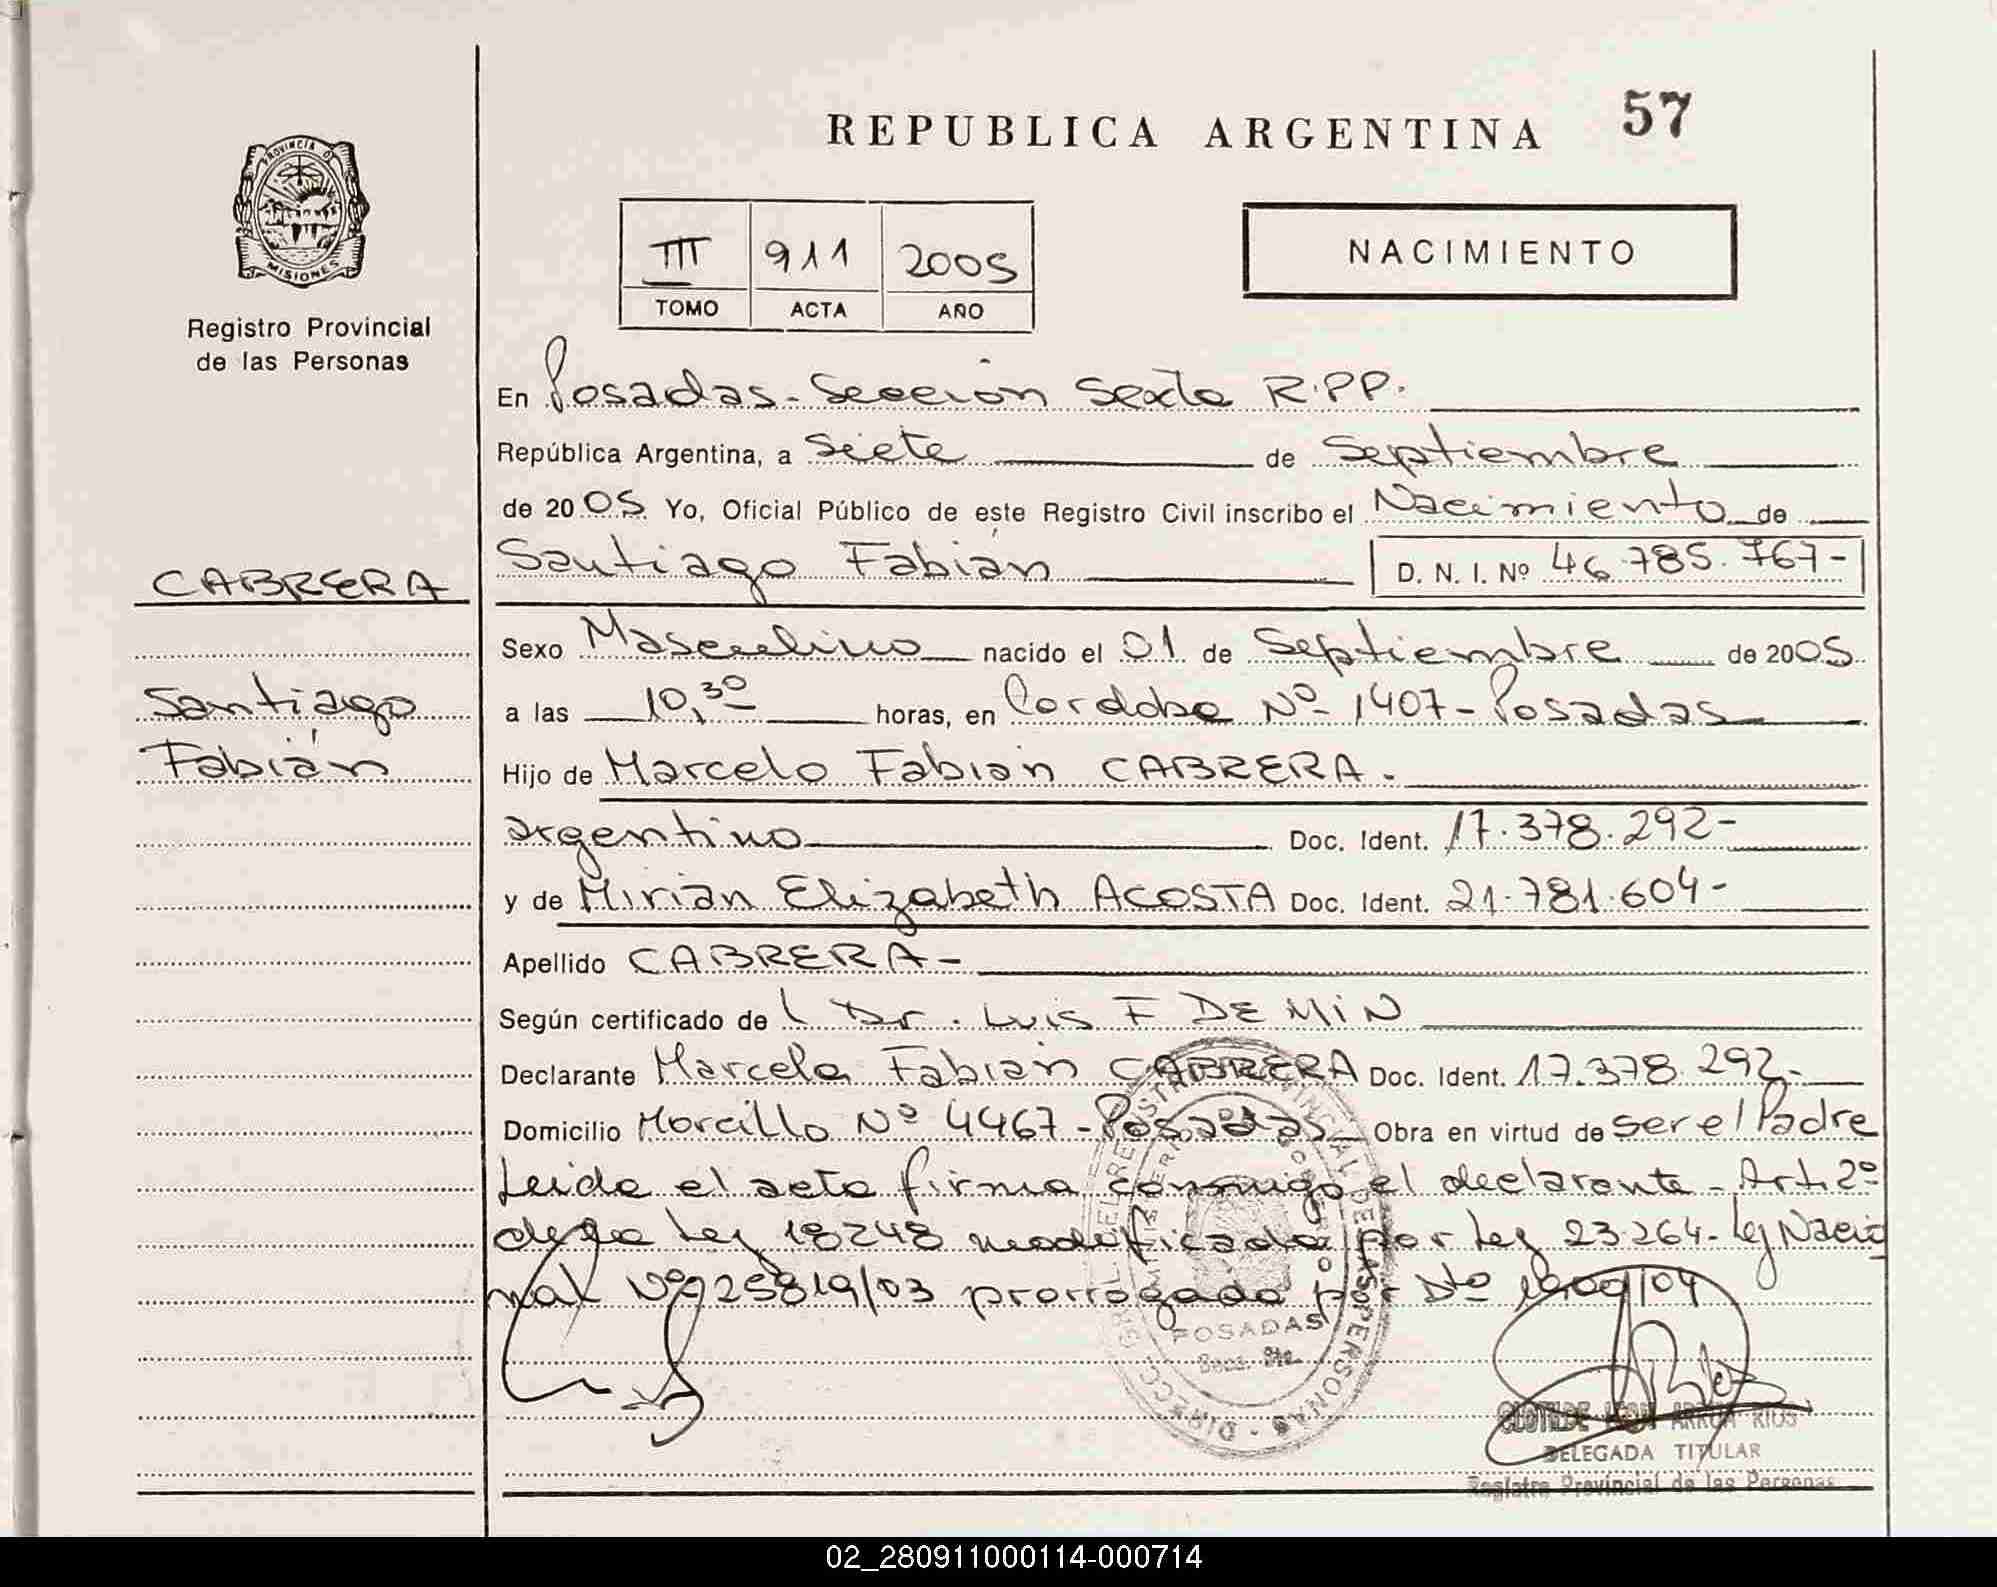 REPUBLICA ARGENTINA 57
PROVINCIA DE
MISIONES
Registro Provincial
de las Personas
III 911 2005
TOMO ACTA AÑO
NACIMIENTO
En Posadas - Sección Sexta R.P.P.
República Argentina, a Siete de Septiembre
de 2005 Yo, Oficial Público de este Registro Civil inscribo el Nacimiento de
Santiago Fabián D. N. I. Nº 46.785.767-
CABRERA
Santiago
Fabián
Sexo Masculino nacido el 01 de Septiembre de 2005
a las 10,30 horas, en Cordoba Nº 1407 - Posadas
Hijo de Marcelo Fabian CABRERA.
argentino Doc. Ident. 17.378.292-
y de Mirian Elizabeth ACOSTA Doc. Ident. 21.781.604-
Apellido CABRERA-
Según certificado de l Dr. Luis F DE MIN
Declarante Marcelo Fabian CABRERA Doc. Ident. 17.378.292-
Domicilio Morcillo Nº 4467 - Posadas Obra en virtud de ser el Padre
Leida el acta firma conmigo el declarante - Art. 2º
de la Ley 18248 modificada por Ley 23.264 - Ley Nacio
nal Nº 25819/03 prorrogada por Dto 1900/04
POSADAS
Secc. 6ta.
DELEGADA TITULAR
Registro Provincial de las Personas
02_280911000114-000714